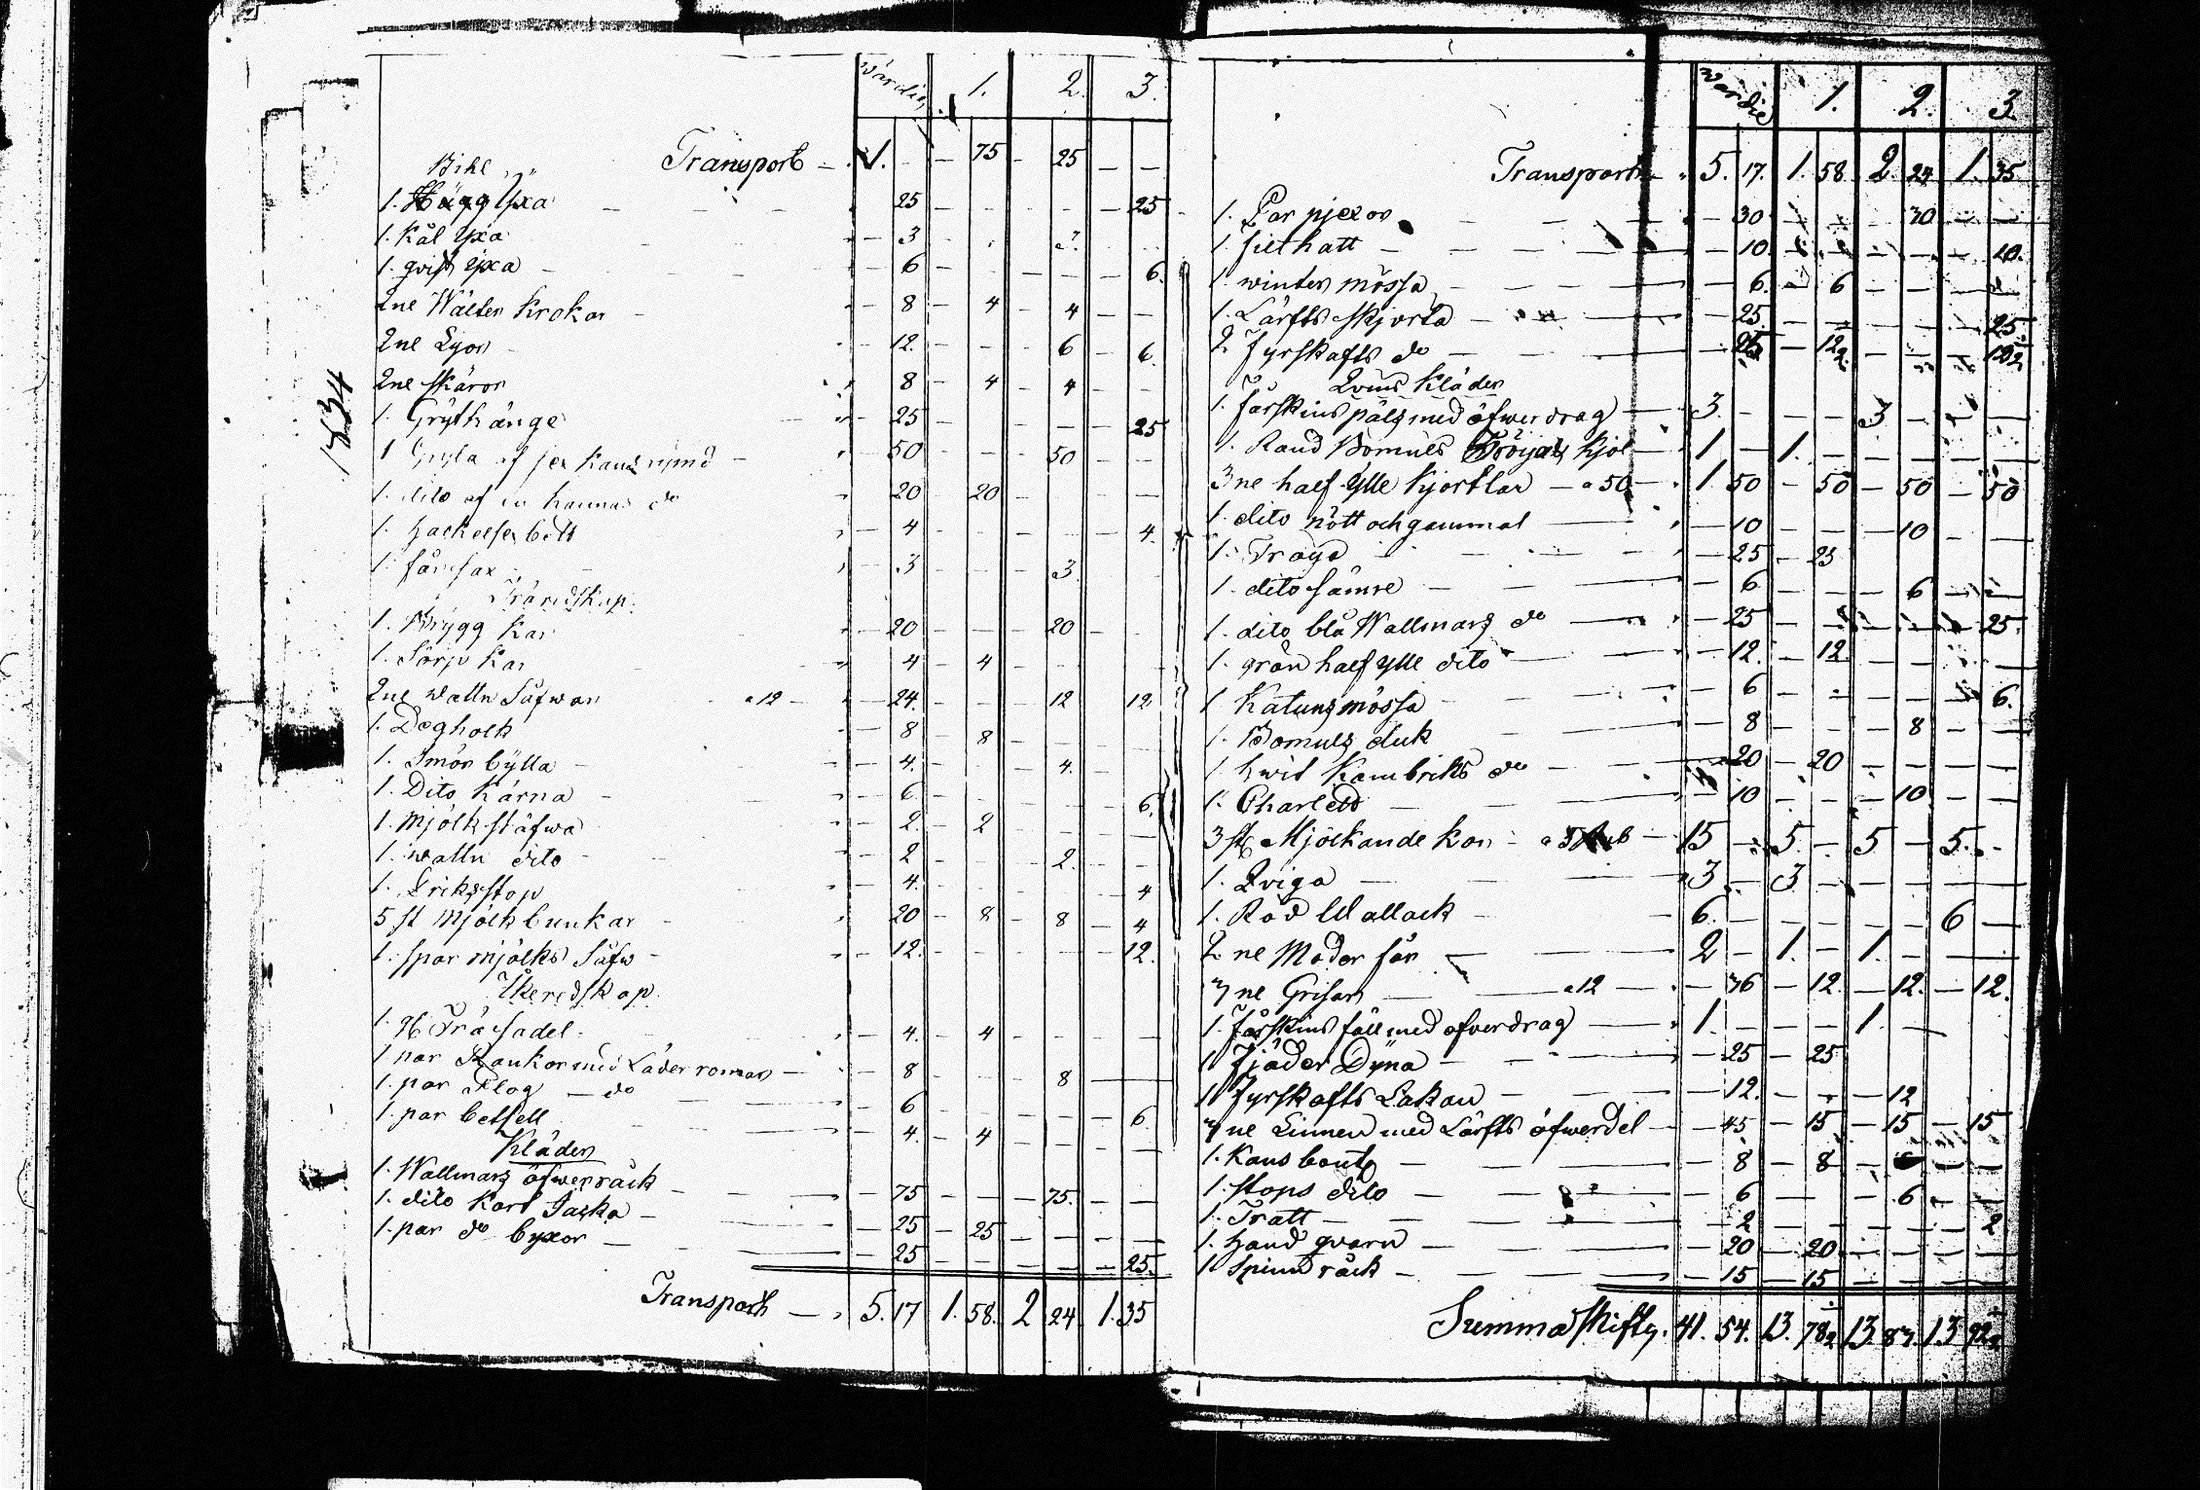 1834
wärdie 1. 2. 3.
Transport 1. 75 25
Bihl
1. Hugg Yxa 25 25
1. Kål yxa 3 3.
1. qvist yxa 6 6.
2ne Wälter Krokar 8 4 4
2ne Lyor 12. 6 6
2ne skäror 8 4 4
1. Grÿthänge 25 25
1 Gryta af sex kans rymd 50 50
1. dito af en kannas do 20 20
1. hackelse bett 4 4.
1. fårsax 3 3
Träredskap.
1. Brÿgg kar 20 20
1. Sörp Kar 4 4
2ne wattu Såfwar a 12 24. 12 12
1. Degholk 8 8
1. Smör bÿtta 4. 4.
1. Dito kärna 6. 6
1. Mjölk stäfwa 2. 2
1. wattu dito 2 2.
1. Drikstop 4. 4
5 st Mjölk bunkar 20 8 8 4
1. spar mjölks Såfw 12. 12.
Åkeredskap.
1. Träsadel 4. 4
1 par Rankor med Läder romar 8 8
1. par Plog do 6 6
1. par betsell 4. 4
Kläder
1. Wallmars öfwerråck 75 75.
1. dito kort Jacka 25 25
1. par do byxor 25 25.
Transport 5. 17 1. 58. 2 24 1. 35
wärdie 1. 2. 3.
Transport 5. 17. 1. 58 2. 24 1. 35
1. Par pjexor 30 30
1. filthatt 10. 10.
1. winter mössa 6. 6
1. Lärfts skjorta 25. 25
2 fyrskafts do 25 12 2. 12 2
Qvins Kläder
1. fårskins päls med öfwerdrag 3. 3
1. Rand Bomuls Kjol 1 1.
3ne half ylle Kjortlar a 50 1. 50 50 50 50
1. dito nött och gammal 10 10
1. Tröja 25 25
1. dito sämre 6 6
1. dito blå Wallmars do 25 25.
1. grön half ylle dito 12. 12.
1 Katuns mössa 6 6.
1. Bomuls duk 8 8
1 hwit Kambriks do 20 20
1. Charled 10 10
3 st Mjölkande kor a 5 Rub 15 5 5 5.
1. Qviga 3 3
1. Röd Wallack 6. 6
2 ne Moder får 2 1. 1.
3 ne Grisar a 12 36 12. 12. 12.
1. fårskins fäll med ofverdrag 1. 1.
1 fjäder Dÿna 25 25
1 fyrskafts Lakan 12. 12
3 ne Linnen med Lärfts öfwerdel 45 15 15 15
1. Kans boutg 8 8
1. stops dito 6 6
1. Tratt 2 2
1. hand qvarn 20 20
1 spinn råck 15 15
Summa skiftg. 41. 54. 13. 78 2 13 83. 13 92 2